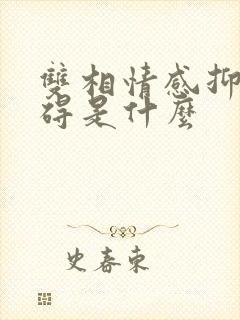 雙相情感抑
碍是什麼
史春東